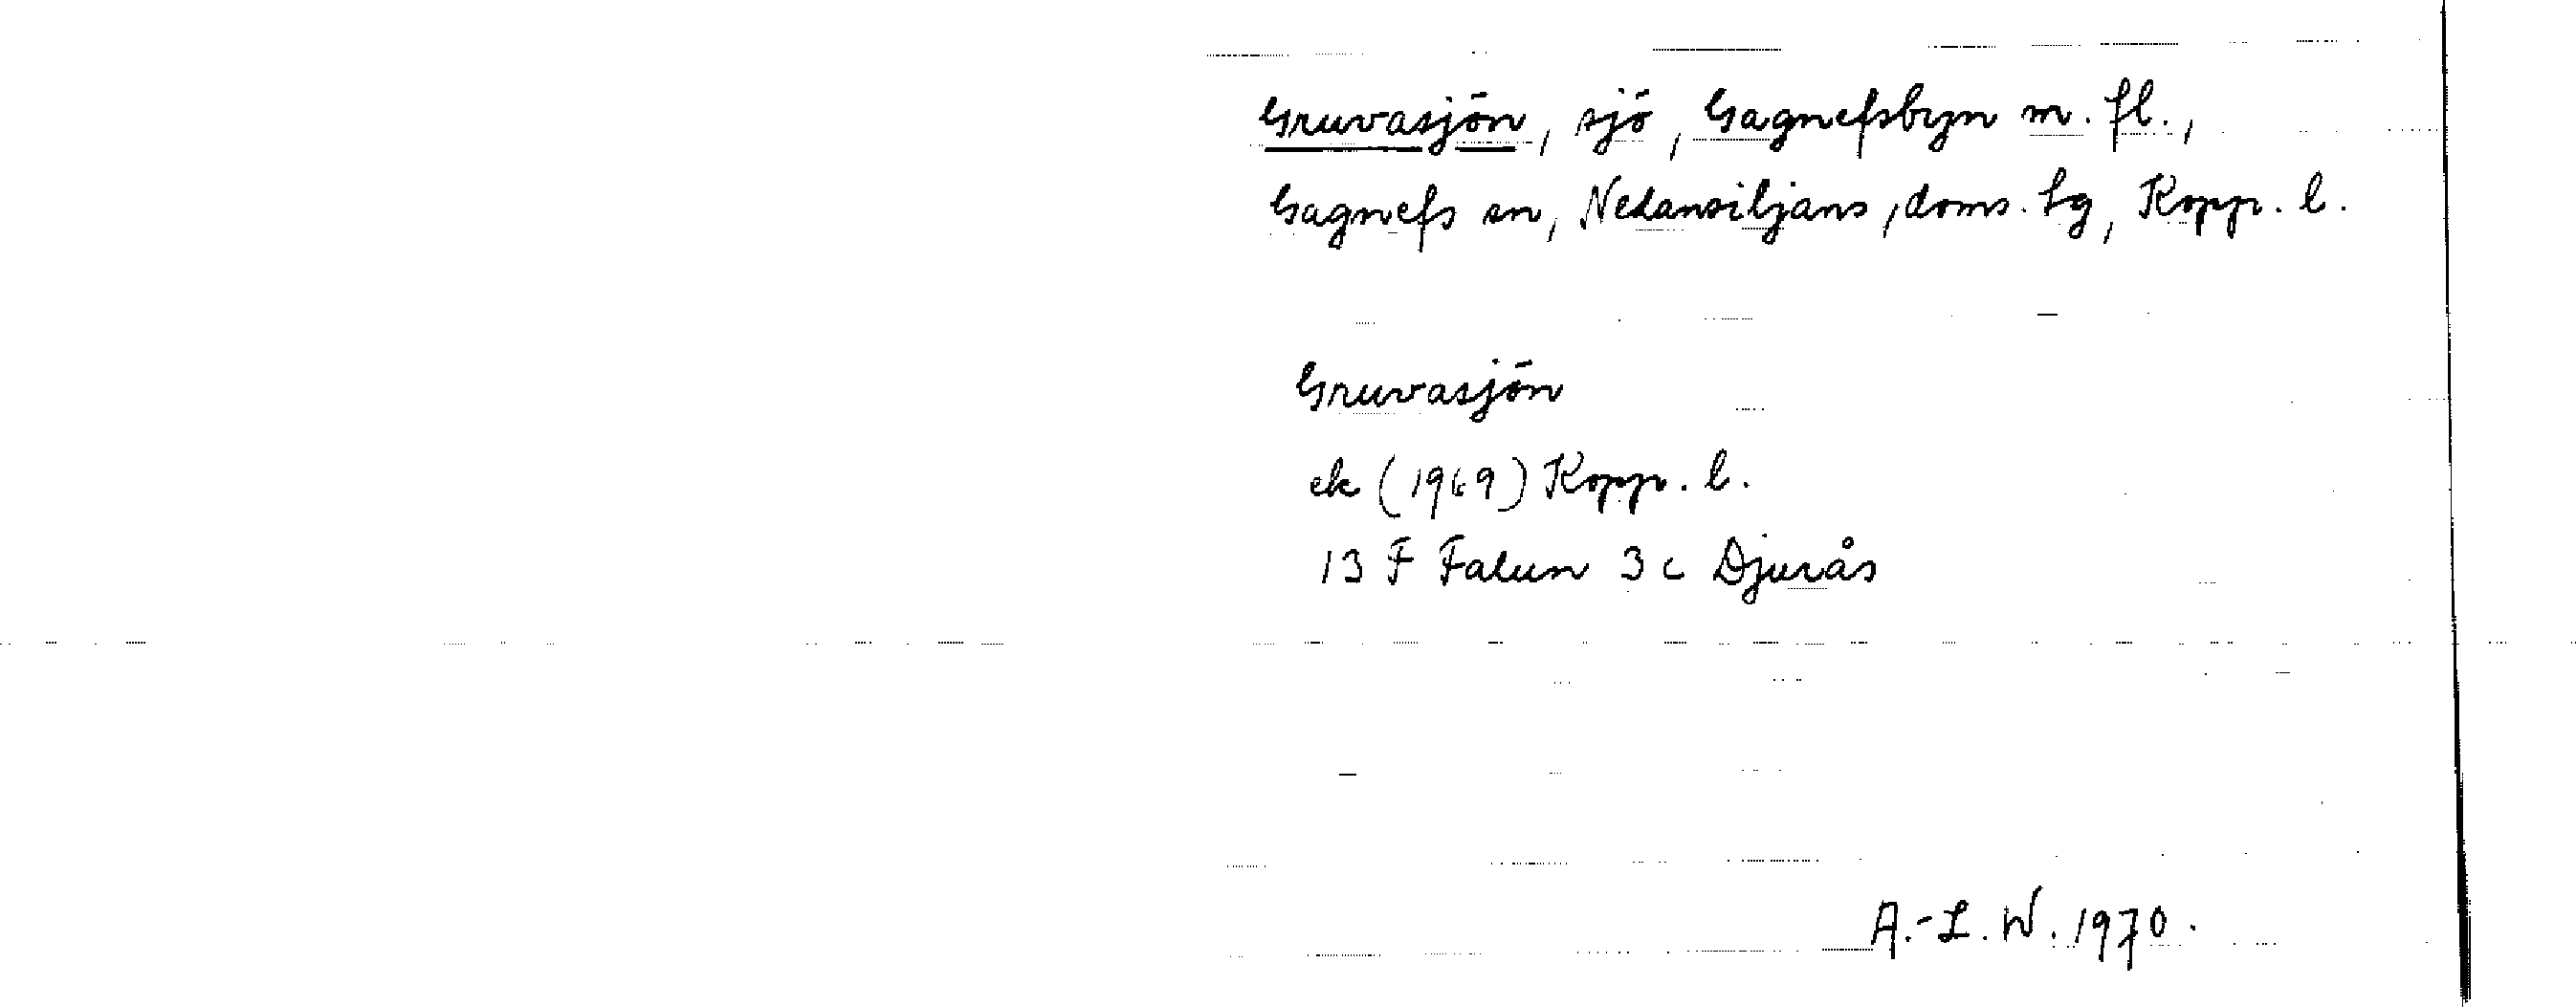 Gruvasjön, sjö, Gagnefsbyn m. fl.,
Gagnefs sn, Nedansiljans, doms. lg, Kopp. l.
Gruvasjön
ek (1969) Kopp. l.
13 F Falun 3 c Djurås
A.-L. W. 1970.